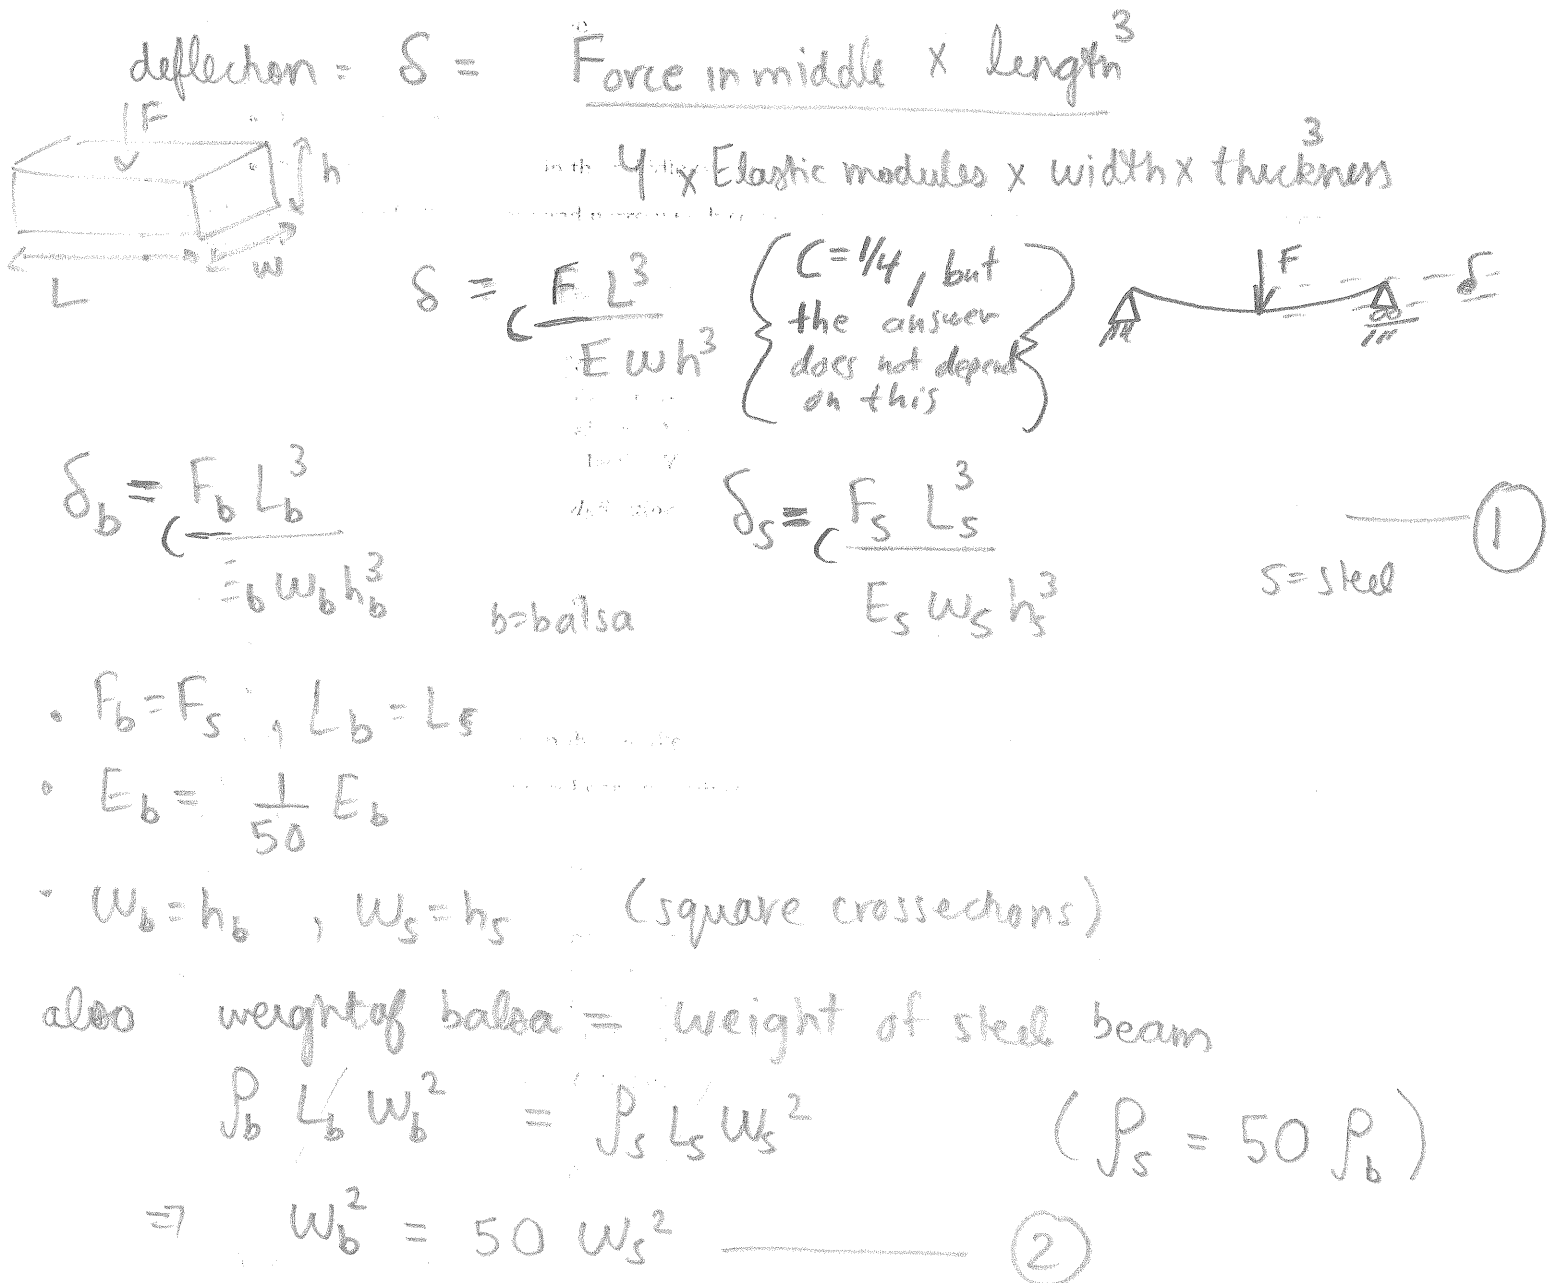 deflection = δ = Force in middle × length³
4 × Elastic modules × width × thickness³
F
h
w
L
δ = C F L³ / E w h³
{C = 1/4, but
the answer
does not depend
on this}
F
δ
δb = C Fb Lb³ / Eb wb hb³
b = balsa
δs = C Fs Ls³ / Es ws hs³
1
s = steel
• Fb = Fs , Lb = Ls
• Eb = 1/50 Eb
• wb = hb , ws = hs (square crossections)
also weight of balsa = weight of steel beam
ρb Lb wb² = ρs Ls ws² (ρs = 50 ρb)
⇒ wb² = 50 ws² 2